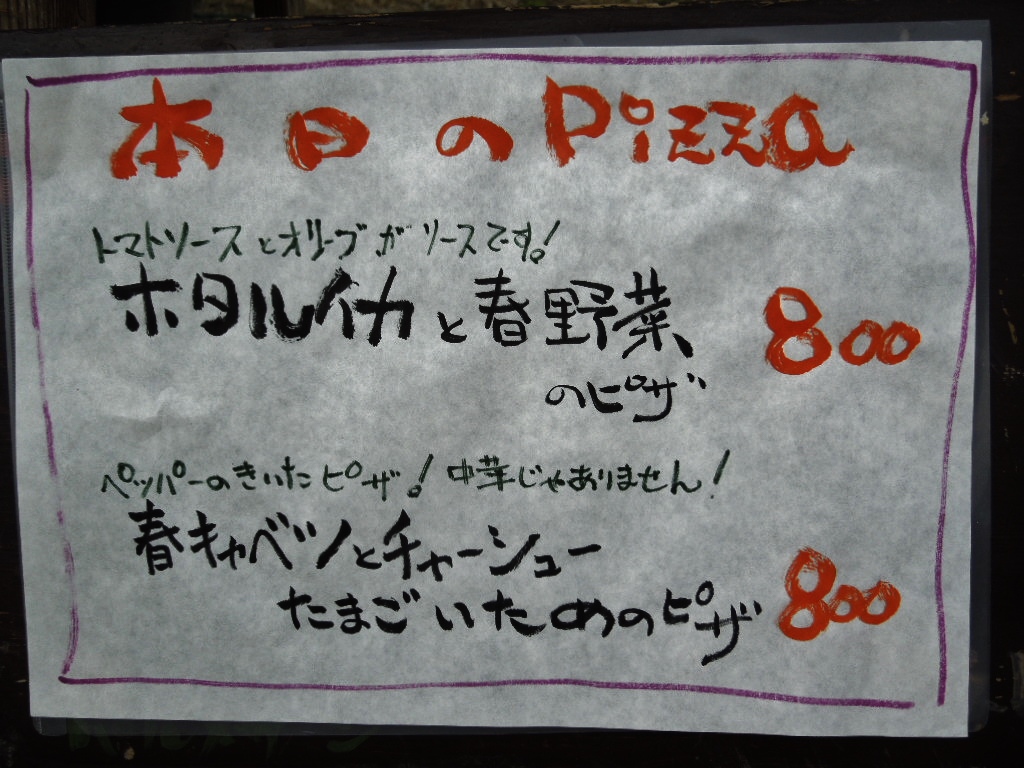 本日のPizza
トマトソースとオリーブがソースです!
ホタルイカと春野菜
のピザ
800
ペッパーのきいたピザ! 中華じゃありません!
春キャベツとチャーシュー
たまごいためのピザ
800